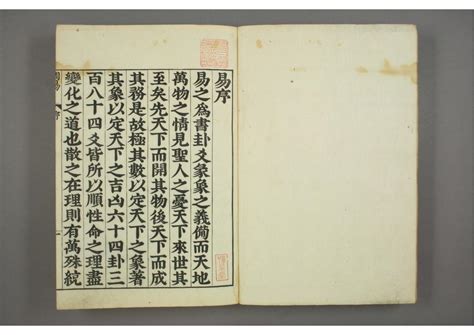 易序
易之爲書卦爻彖象之義備而天地
萬物之情見聖人之憂天下來世其
至矣先天下而開其物後天下而成
其務是故極其數以定天下之象著
其象以定天下之吉凶六十四卦三
百八十四爻皆所以順性命之理盡
變化之道也散之在理則有萬殊統